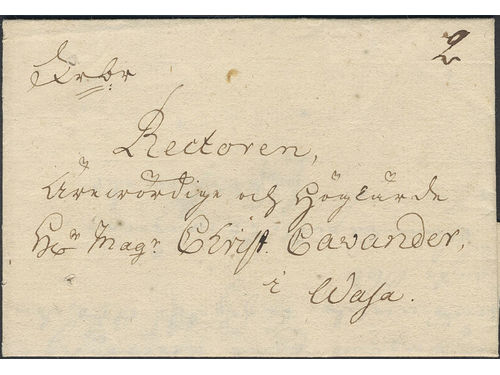 Frbr 2
Rectoren,
Ärewördige och Höglärde
Hr Magr Christ. Cavander,
i Wasa.